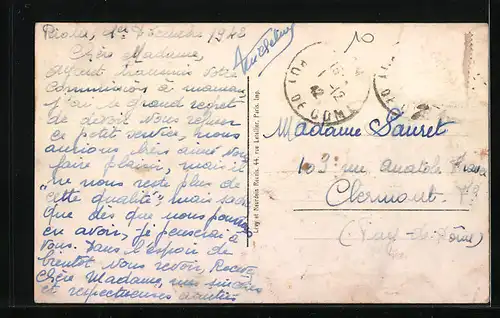 1er Décembre 1942
Chère Madame,
Ayant transmis votre
commission à maman
j'ai le grand regret
de devoir vous refuser
ce petit service, nous
aurions bien aimé vous
faire plaisir, mais il
ne nous reste plus de
"cette qualité", mais
que dès que nous pourrons
en avoir, je penserai à
vous. Dans l'espoir de
bientôt vous revoir, Recevez
Chère Madame, mes sincères
et respectueuses amitiés
Lévy et Neurdein Réunis, 44, rue Letellier, Paris, Imp.
10
PUY DE DOME
Madame Sauret
103 rue Anatole France
Clermont-Fd
(Puy-de-Dôme)